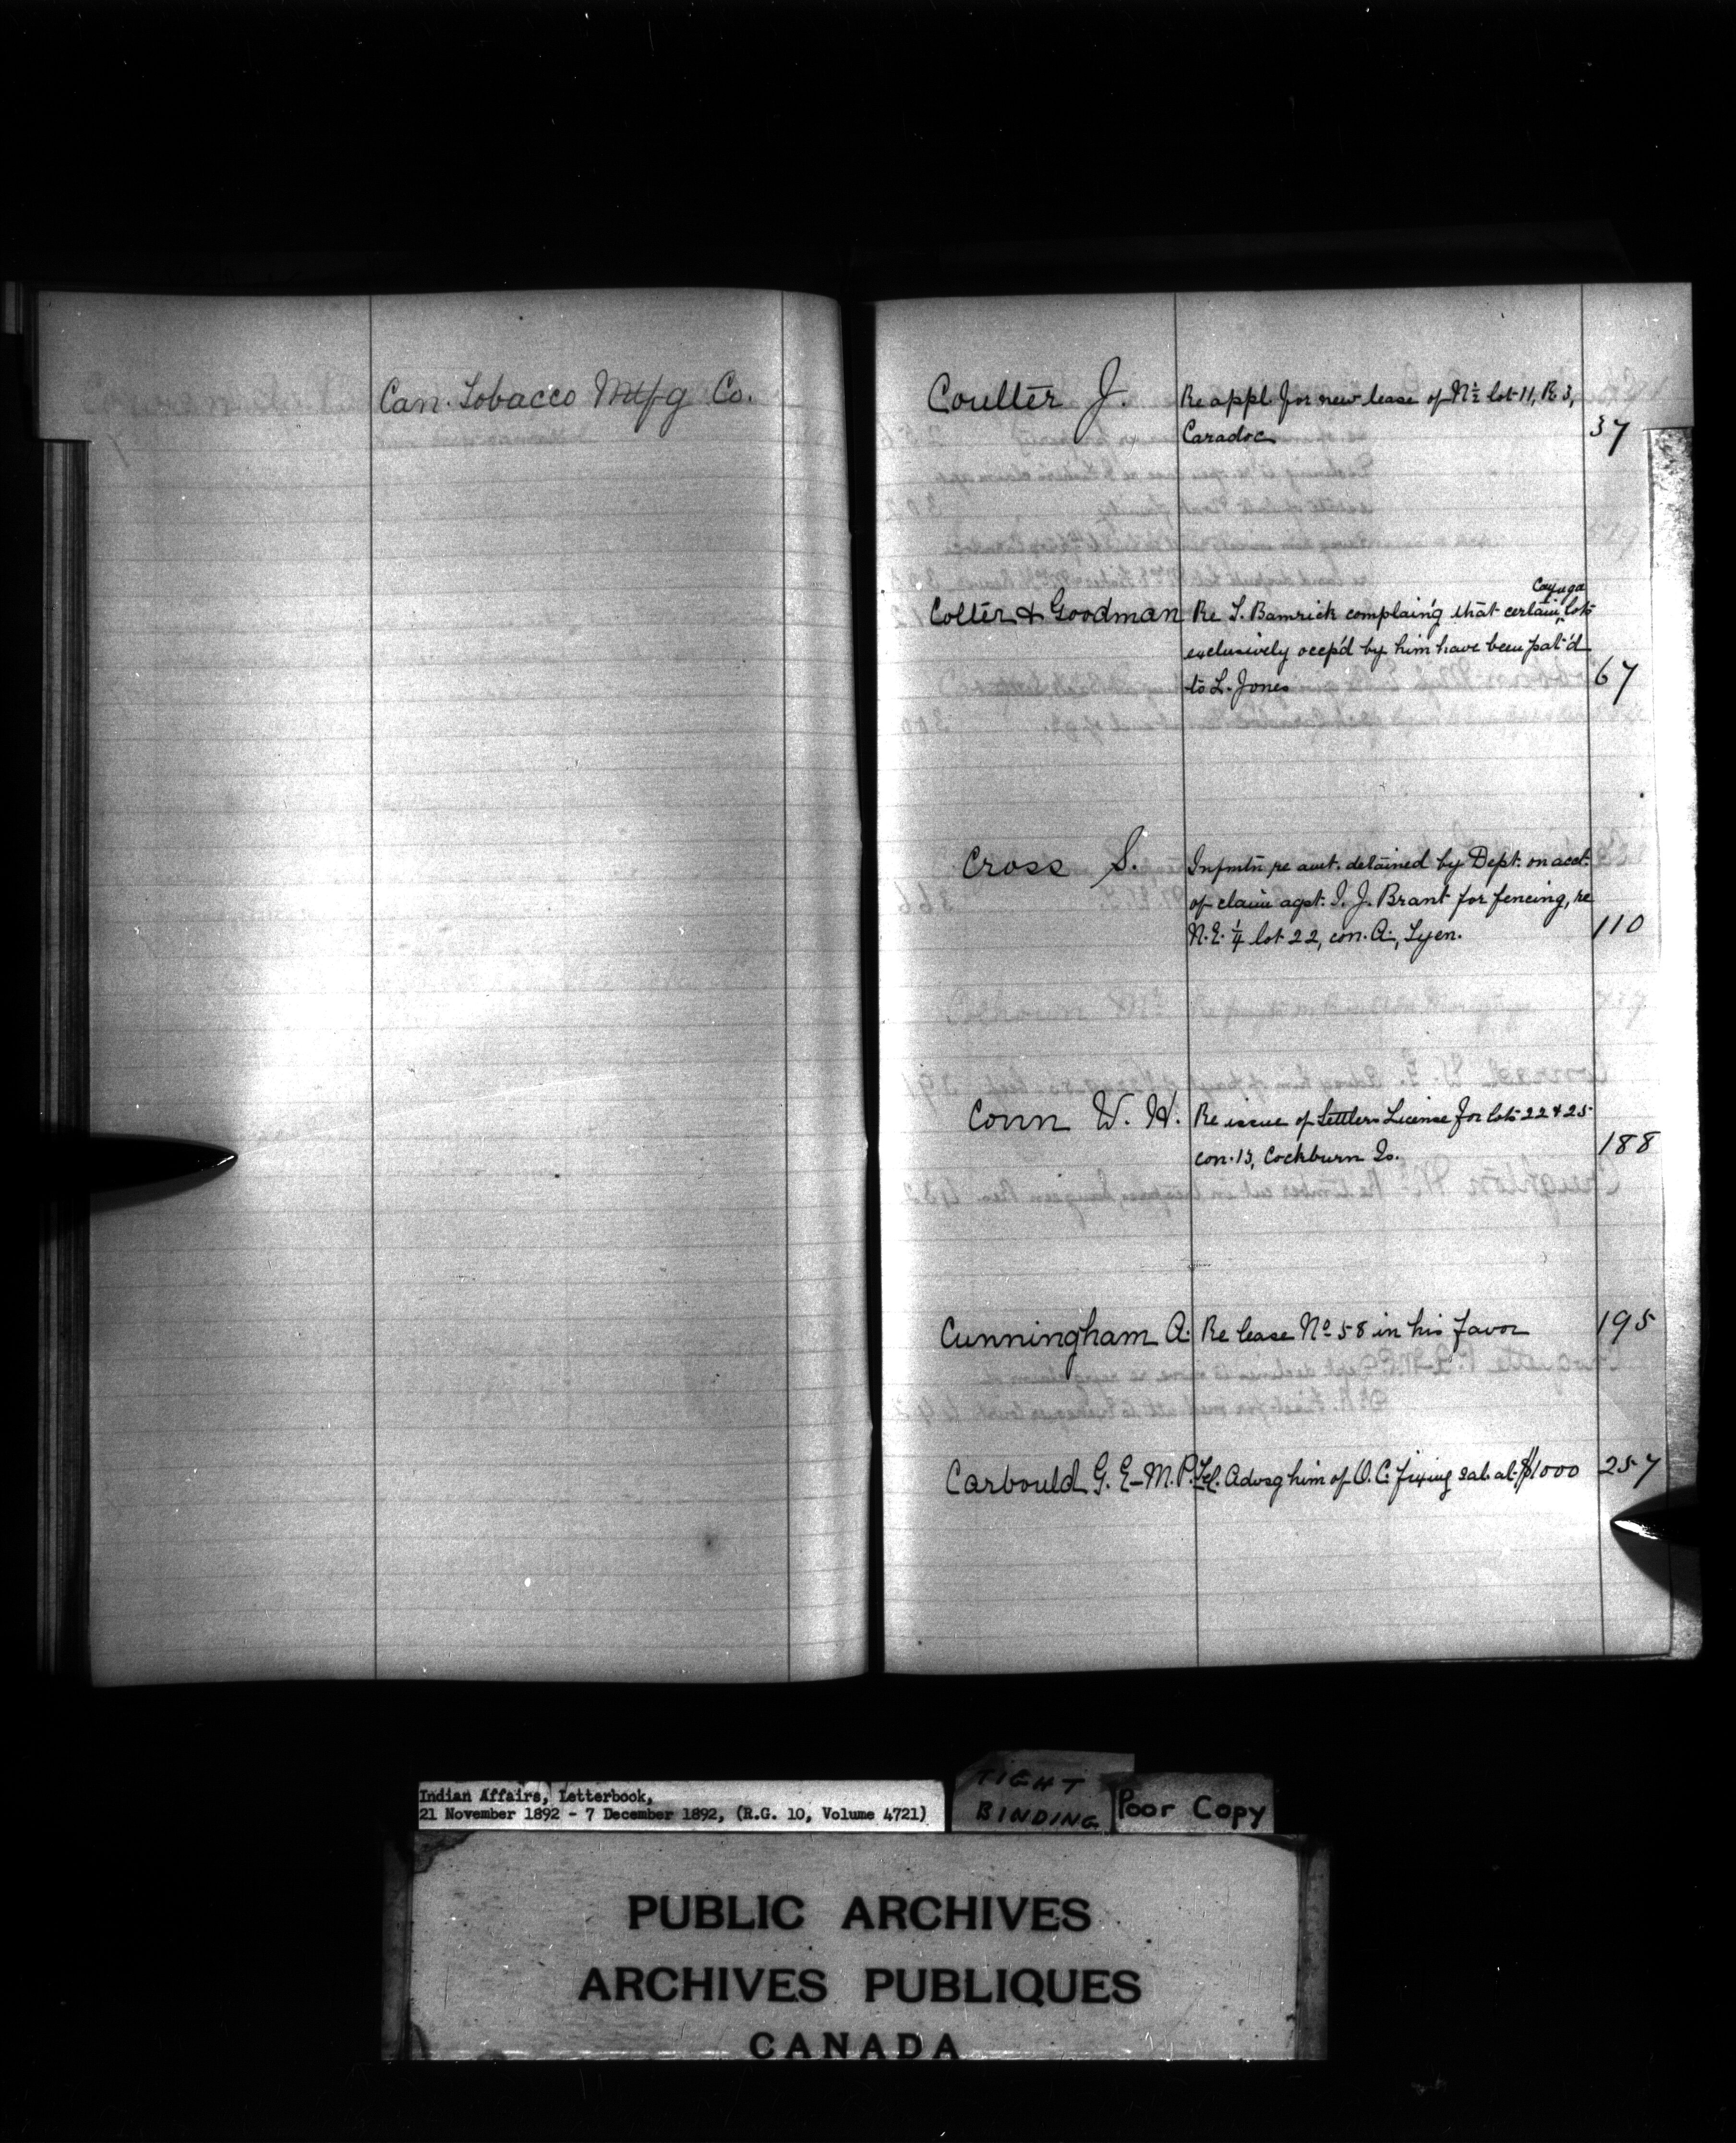 Can. Tobacco Mtfg Co.
Coulter J. Re appl. for new lease of N½ lot 11, R 3,
Caradoc 37
Cayuga
Colter & Goodman Re T. Bamrick complain'g that certain lots
exclusively occp'd by him have been pat'd
to L. Jones 67
Cross S. Infmtn re amt. detained by Dept. on acct.
of claim agst. I. J. Brant for fencing, re
N.E. ¼ lot 22, con. A., Tyen. 110
Conn W. H. Re issue of Settlers License for lots 22 & 25
con. 13, Cockburn Is. 188
Cunningham A. Re lease No 58 in his favor 195
Carbould G. E - M.P. Tel. Advsg him of O.C. fixing sal. at $1000 257
Indian Affairs, Letterbook,
21 November 1892 - 7 December 1892, (R.G. 10, Volume 4721)
TIGHT
BINDING
Poor Copy
PUBLIC ARCHIVES
ARCHIVES PUBLIQUES
CANADA